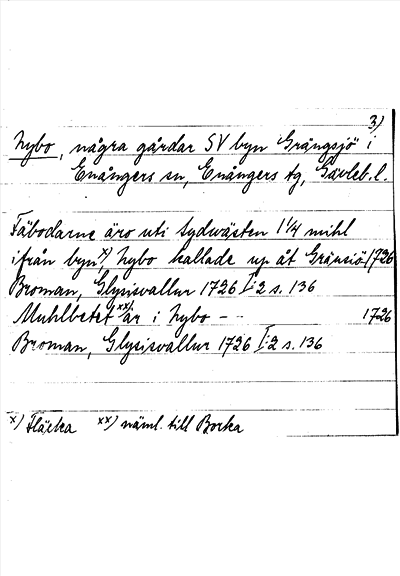 3)
Nybo, några gårdar SV byn Grängsjö i
Enångers sn, Enångers tg, Gävleb. l.
Fäbodarne äro uti sydwästen 1 1/4 mihl
ifrån byn x) Nybo kallade up åt Gränsiö 1726
Broman, Glysisvallur 1726 I:2 s. 136
Muhlbetet xx) är i Nybo - - 1726
Broman, Glysisvallur 1726 I:2 s. 136
x) Fläcka xx) näml. till Borka